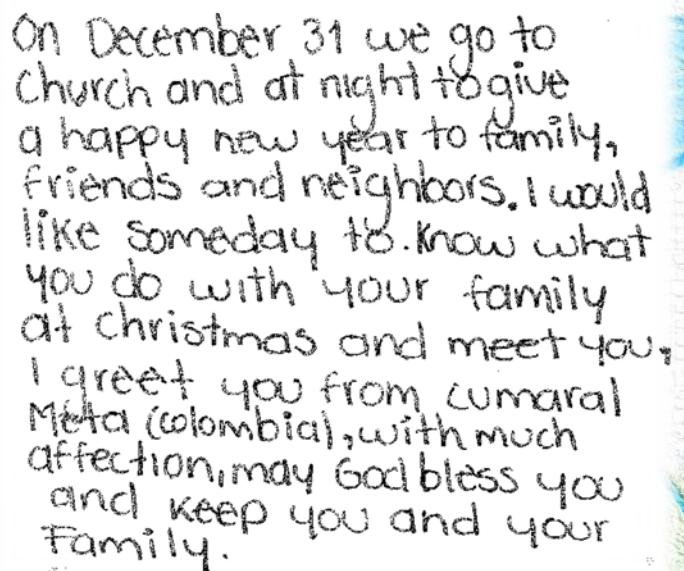 On December 31 we go to
Church and at night to give
a happy new year to family,
friends and neighbors. I would
like someday to. Know what
you do with your family
at christmas and meet you,
I greet you from cumaral
Meta (colombia), with much
affection, may God bless you
and keep you and your
Family.